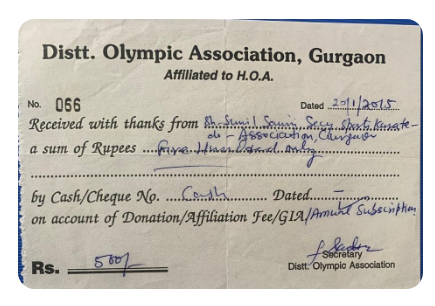 Distt. Olympic Association, Gurgaon
Affiliated to H.O.A.
No. 066 Dated 20/1/2015
Received with thanks from Sh. Sunil Saini Secy Sports Karate-
do - Association, Gurgaon
a sum of Rupees Five Hundred only
by Cash/Cheque No. Cash Dated -
on account of Donation/Affiliation Fee/GIA/Annual Subscription
Rs. 500/-
Secretary
Distt. Olympic Association